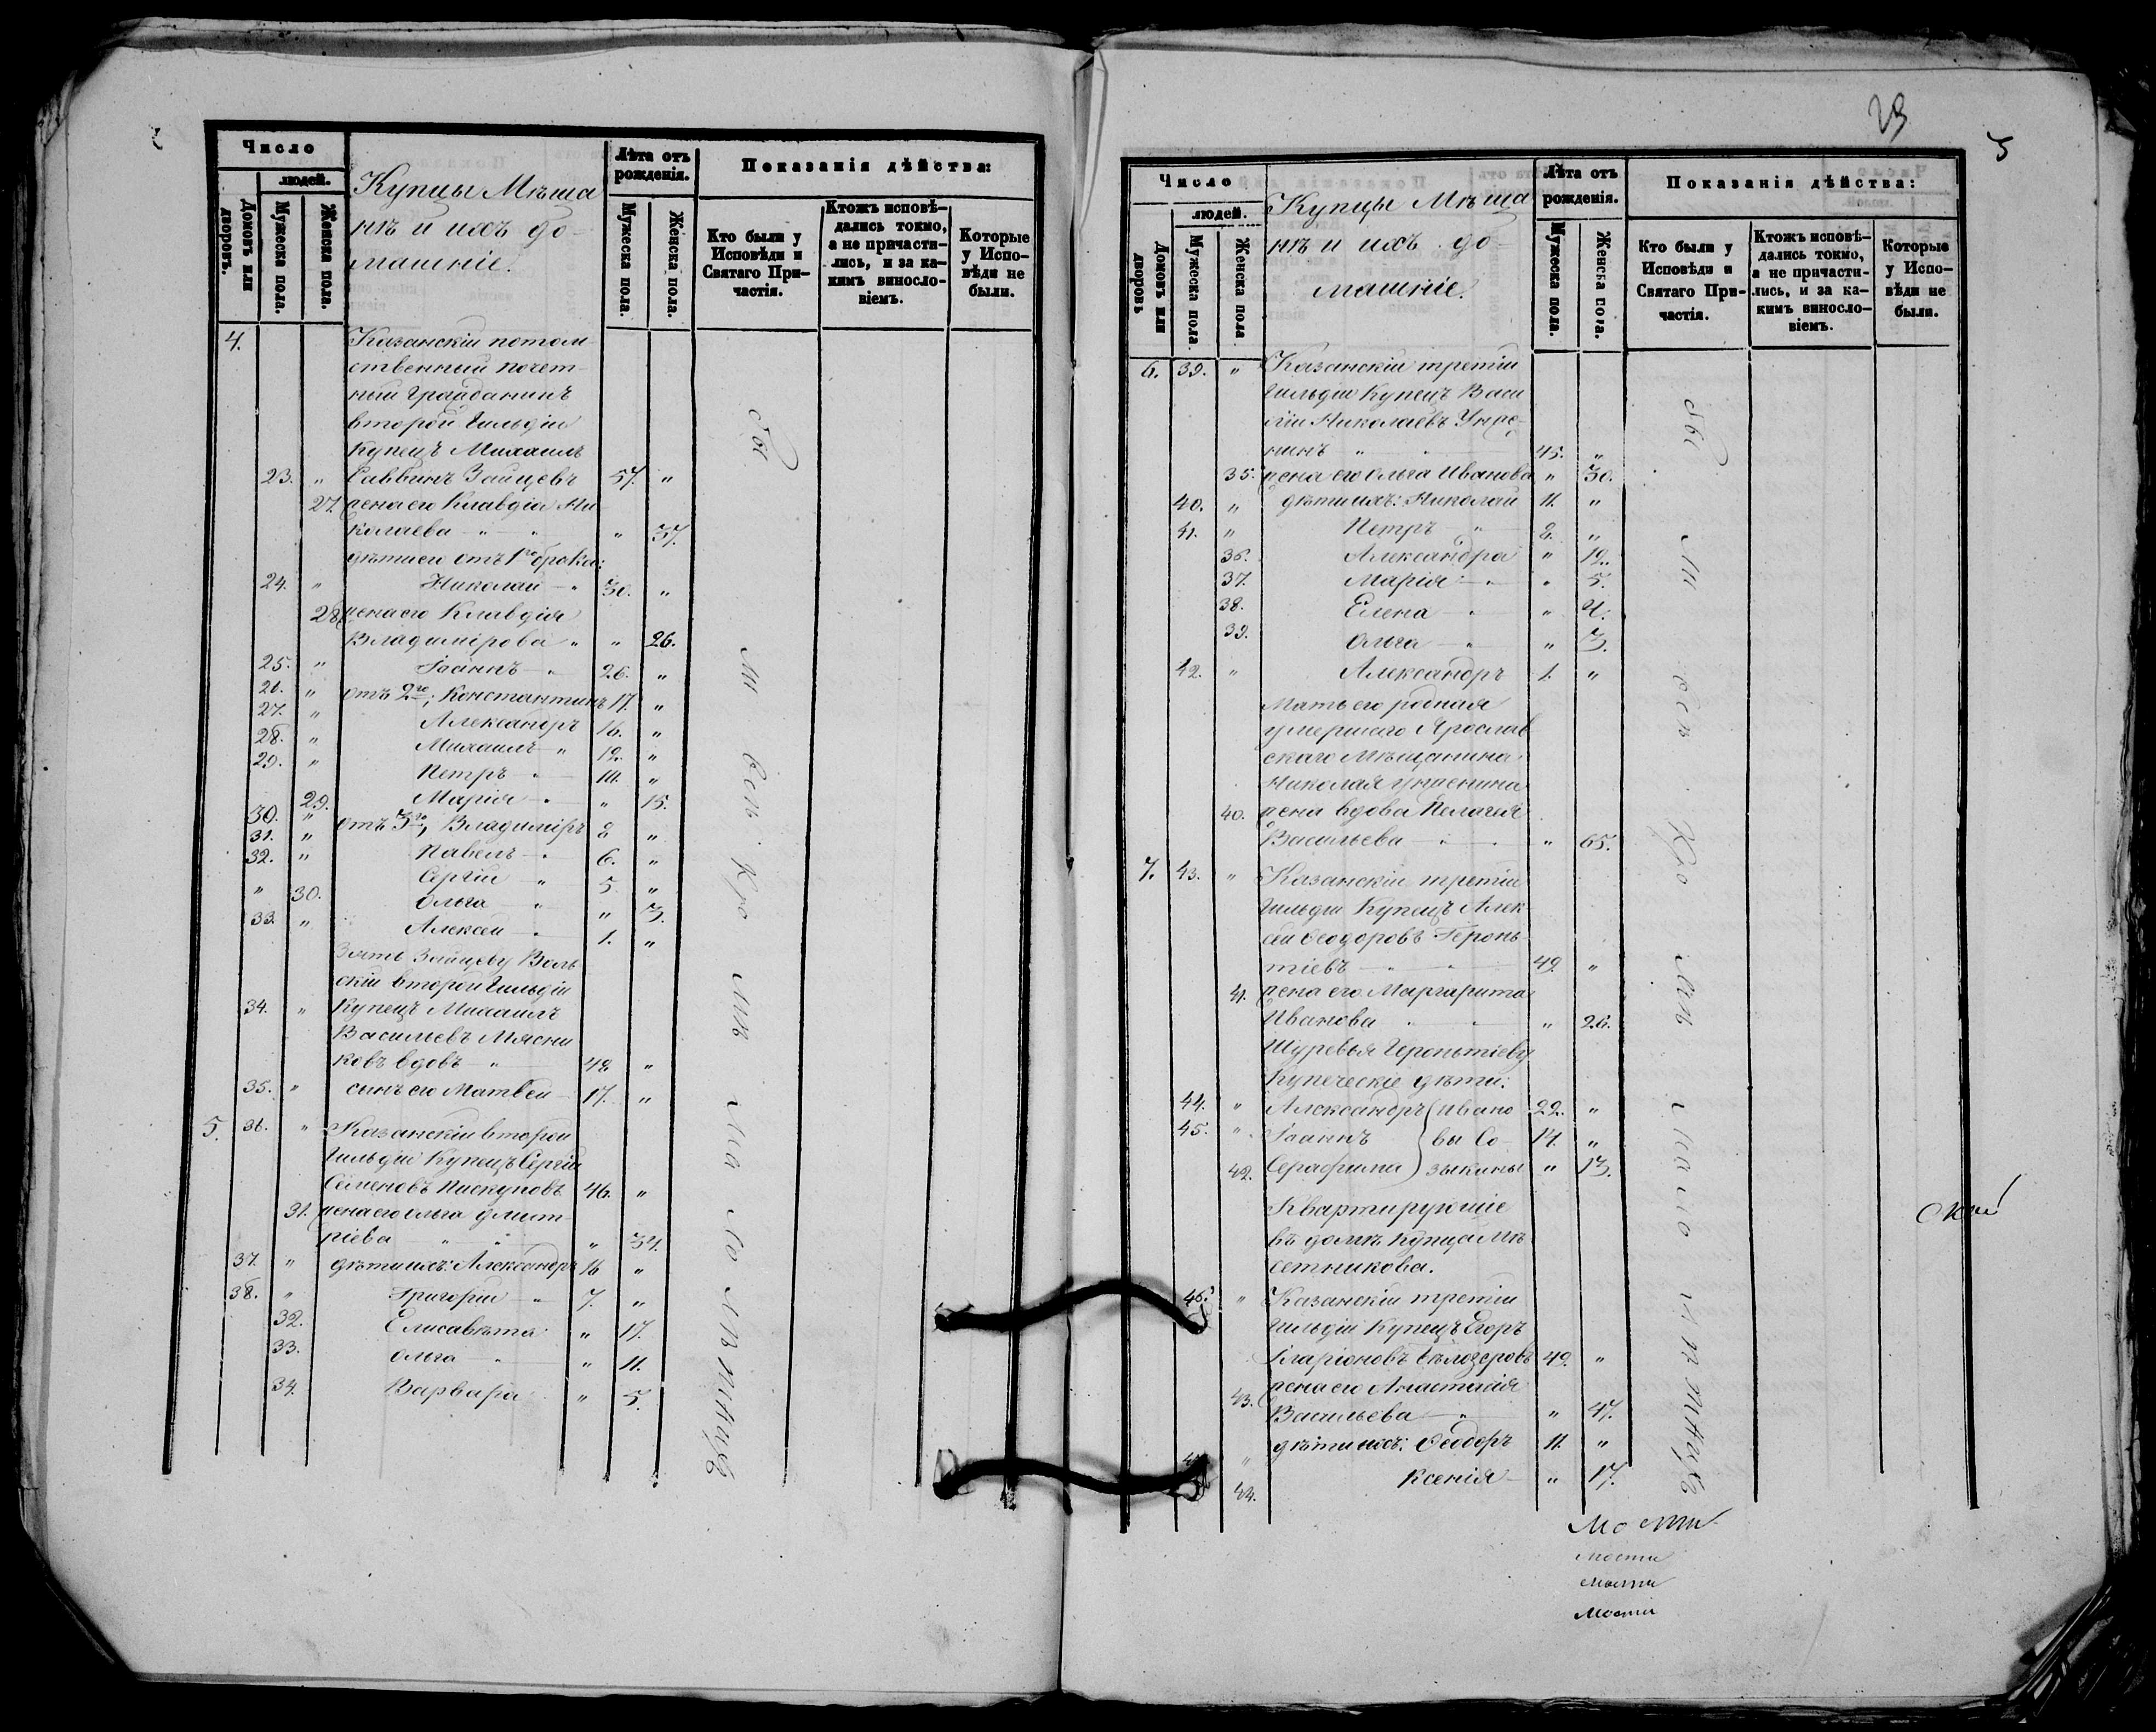 Число
людей.
Домовъ или дворовъ.
Мужеска пола.
Женска пола.
Купцы Мѣща
не и ихъ до-
машніе.
Лѣта отъ рожденія.
Мужеска пола.
Женска пола.
Показанія дѣйства:
Кто были у Исповѣди и Святаго Причастія.
Ктожъ исповѣдались токмо, а не причастились, и за какимъ винословіемъ.
Которые у Исповѣди не были.
4. Казанскій потом
ственный почет-
ный Гражданинъ
второй гильдіи
Купецъ Михаилъ
23. " Саввинъ Зайцевъ 57. "
27. жена его Клавдія Ни
колаева " " " 37.
дѣти его отъ 1го брака:
24. " Николай " 30. "
28. жена его Клавдія
Владимірова " " 26.
25. " Іоаннъ " 26. "
26. " отъ 2го; Константинъ 17. "
27. " Александръ 16. "
28. " Михаилъ " 12. "
29. " Петръ " 10. "
29. Марія " " 15.
30. " отъ 3го, Владиміръ 8 "
31. " Павелъ " 6. "
32. " Сергій " 5. "
" 30. Ольга " " 3.
33. " Алексей " 1. "
Зять Зайцеву Воль
скій второй гильдіи
34. " Купецъ Михаилъ
Васильевъ Мясни
ковъ вдовъ " 42 "
35. " сынъ его Матвей 17. "
5. 36. " Казанскій второй
гильдіи Купецъ Сергій
Семеновъ Пискуновъ 46. "
31. жена его Ольга Дмит-
ріева " " " 34.
37. " дѣти ихъ: Александръ 16 "
38. " Григорій " 7. "
32. Елисавета " 17.
33. Ольга " " 11.
34. Варвара " 5.
бы
ли
всѣ
Кро
мѣ
ма
ло
лѣтныхъ
29
5
Число
людей.
Домовъ или дворовъ
Мужеска пола.
Женска пола
Купцы Мѣща
не и ихъ до-
машніе.
Лѣта отъ рожденія.
Мужеска пола.
Женска пола.
Показанія дѣйства:
Кто были у Исповѣди и Святаго Причастія.
Ктожъ исповѣдались токмо, а не причастились, и за какимъ винословіемъ.
Которые у Исповѣди не были.
6. 39. " Казанскій третій
гильдіи Купецъ Васи
лій Николаевъ Унже-
нинъ " " 45. "
35. жена его Ольга Иванова " 30.
40. " дѣти ихъ: Николай 11. "
41. " Петръ " 2. "
36. Александра " 12.
37. Марія " " 5.
38. Елена " " 4.
39. Ольга " " 3.
42. " Александръ 1. "
Мать его родная
умершаго Ярослав
скаго Мѣщанина
Николая Унженина
40. жена вдова Пелагея
Васильева " " " 65.
7. 43. " Казанскій третій
гильдіи Купецъ Алек
сей Ѳеодоровъ Геронь-
тіевъ " " 49. "
41. жена его Маргарита
Иванова " " " 26.
Шуревья Геронтіеву
Купеческіе дѣти:
44. " Александръ Ивано 22. "
45. " Іоаннъ вы Со- 14. "
42. Серафима зыкины " 13.
Квартирующіе
въ домѣ Купца Мѣ
сетникова.
46. " Казанскій третій
гильдіи Купецъ Егоръ
Иларіоновъ Бѣлозеровъ 49. "
43. жена его Анастасія
Васильева " " 47.
" дѣти ихъ: Ѳеодоръ 11. "
44. Ксенія " 17.
бы
ли
всѣ
Кро
мѣ
мало
лѣтныхъ
Мости
мости
мости
Мости